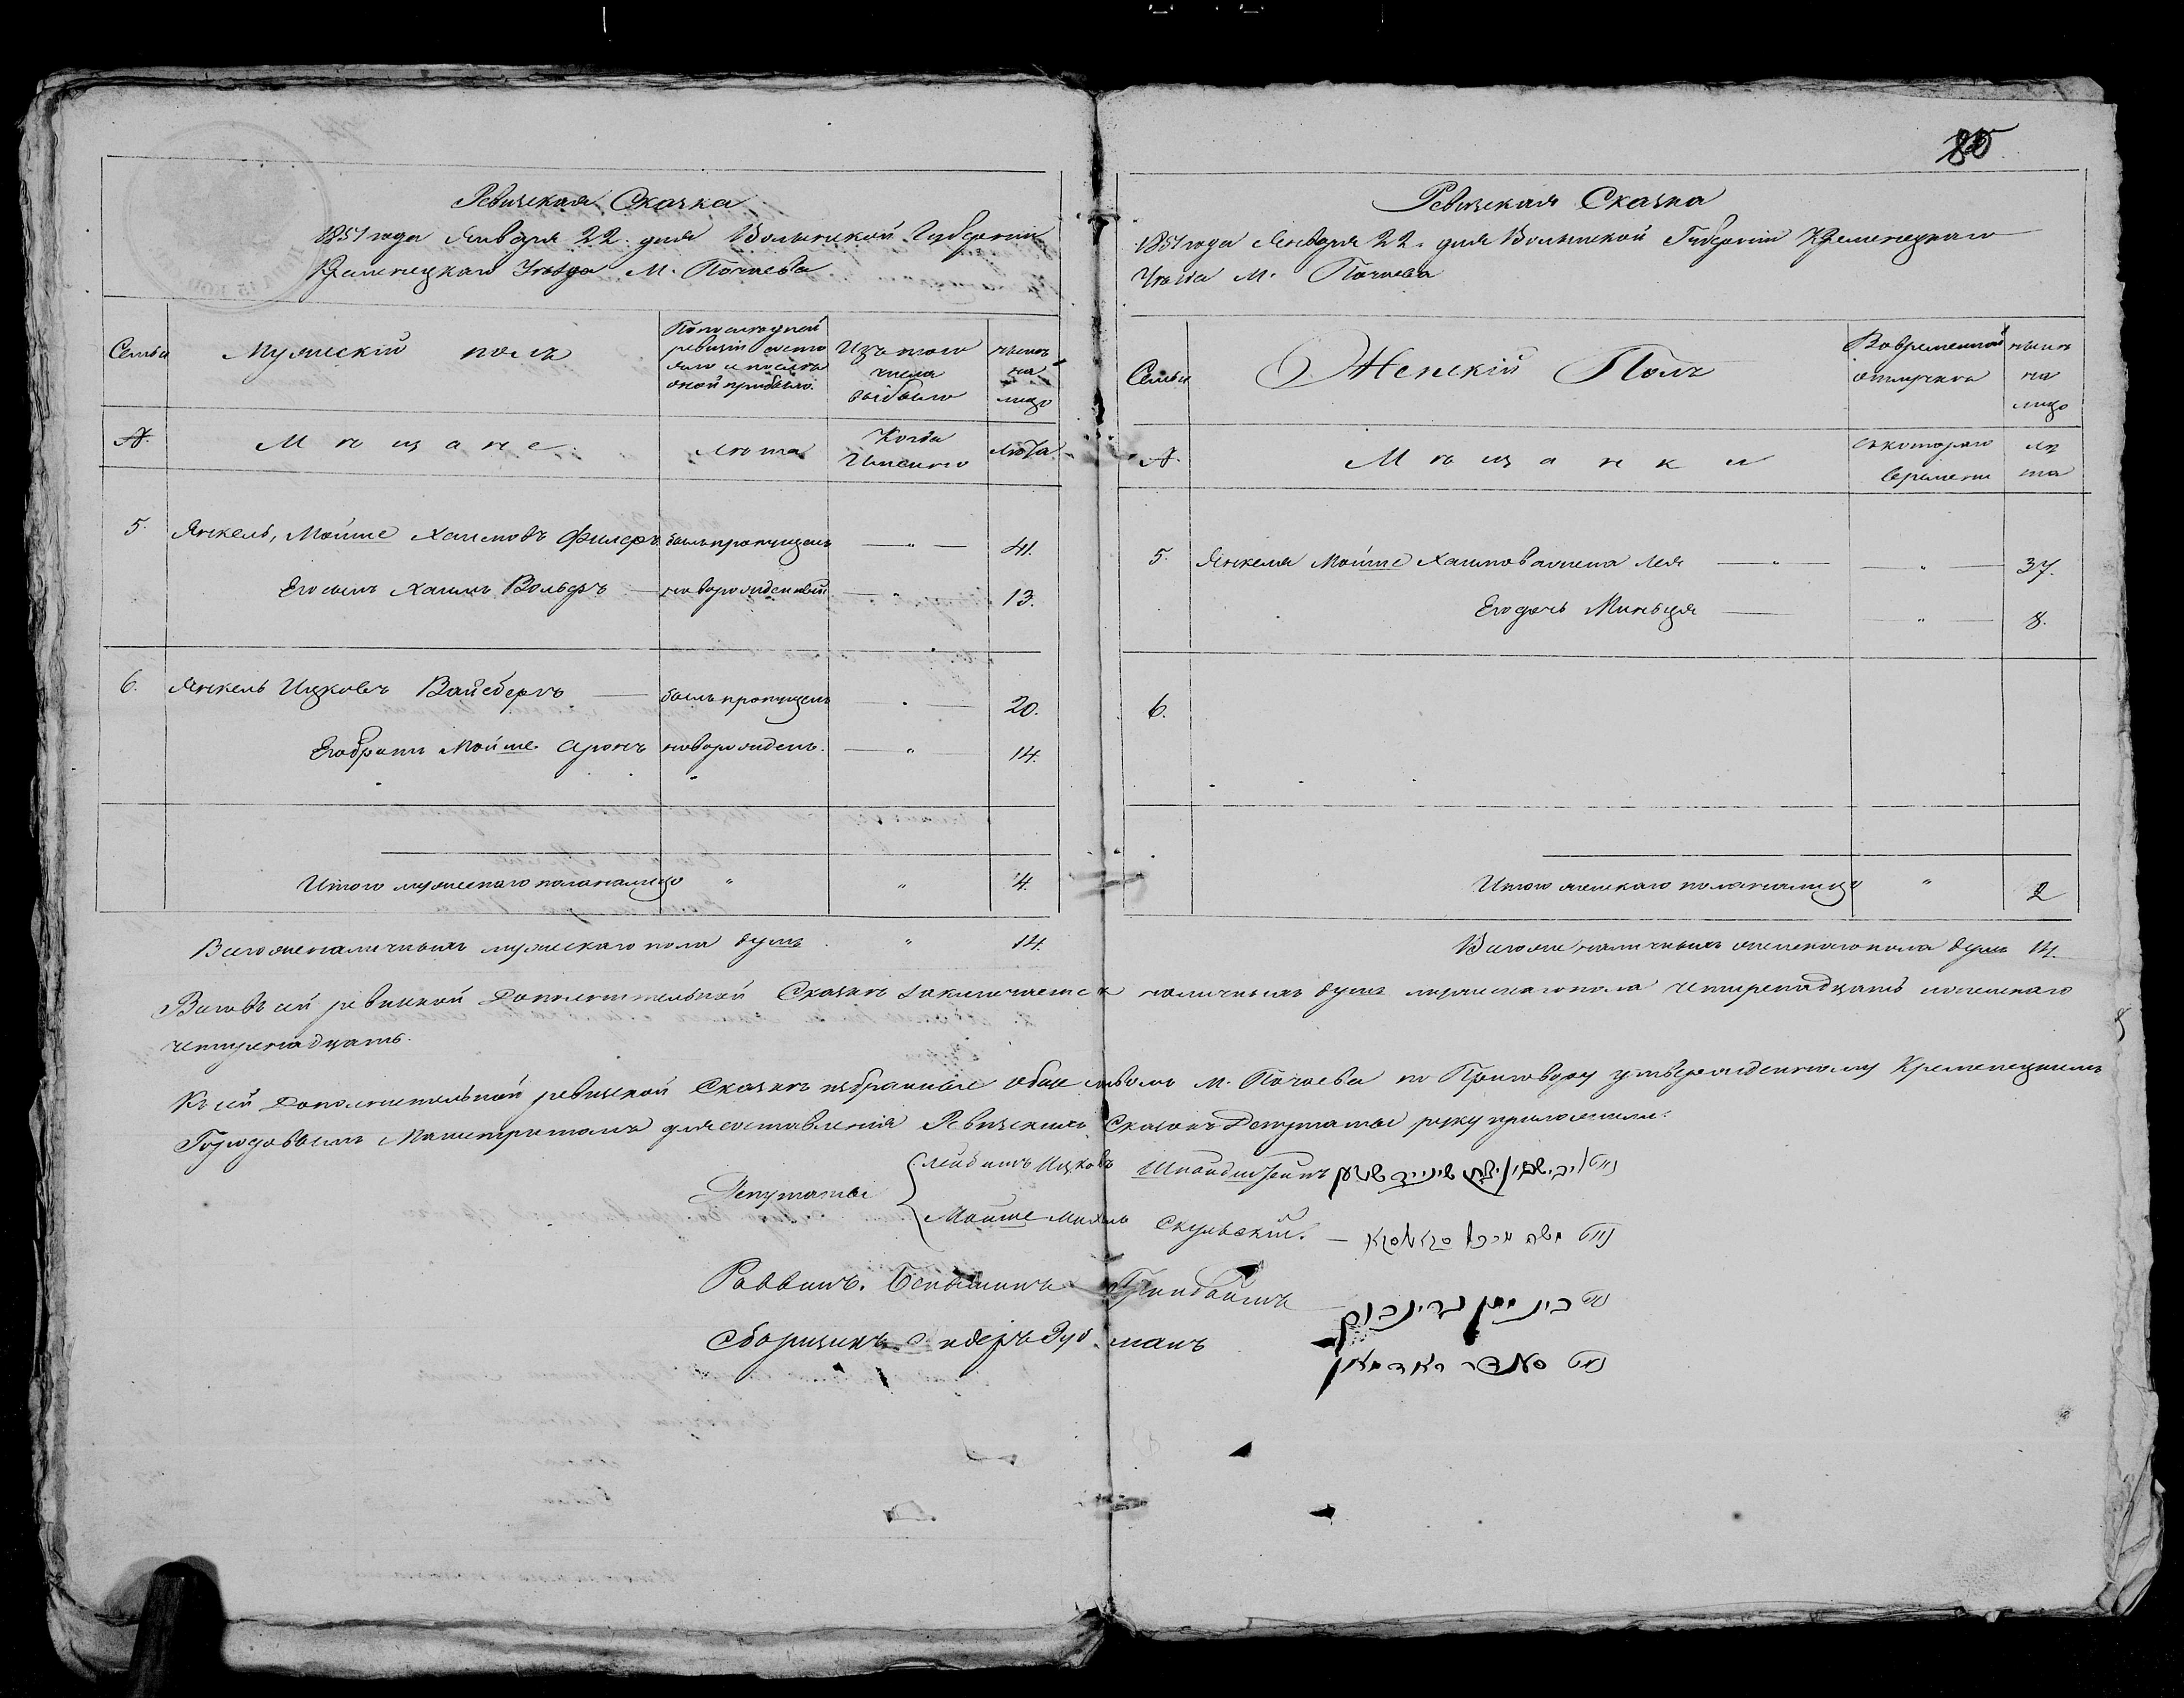 Ревизская Сказка
1851 года Января 22. дня Волынской Губернии
Кременецкаго Уезда М. Почаева
Семьи
Мужеский полъ
По последней
ревизии состо
яло и после
оной прибыло.
Изъ того
числа
выбыло
ныне
на
лицо
№.
Мещане
Лета
Когда
Именно
Лета
5. Янкель, Мойше Хаимовъ Филеръ былъ пропущенъ — " — 41.
Его сынъ Хаимъ Вольфъ — новорожденный — " — 13.
6. Янкель Ицковъ Вайсбергъ — былъ пропущенъ — " — 20.
Его братъ Мойше Аронъ новорожденъ. — " — 14.
Итого мужескаго пола налицо " " 4.
Всего же наличныхъ мужескаго пола душъ " 14.
85
Ревизская Сказка
1851 года Января 22. дня Волынской Губернии Кременецкаго
Уезда М. Почаева
Семьи
Женский Полъ
Во временной
отлучке
ныне
на
лицо
№.
Мещанки
Съ котораго
времени
ле
та
5. Янкеля Мойше Хаимова жена Лея — " — — " — 37.
Его дочь Миньця — — " — 8.
6.
Итого женскаго пола налицо " 2
Всего же наличныхъ женскаго пола душъ 14.
Всего въ сей ревизкой Дополнительной Сказке заключается наличныхъ душъ мужескаго пола четырнадцать и женскаго
четырнадцать.
Къ сей Дополнительной ревизской Сказке избранные обществомъ м. Почаева по Приговору утвержденному Кременецкимъ
Городовымъ Магистратомъ для составления Ревизскихъ Сказокъ Депутаты руку приложили.
Депутаты
Лейбишъ Ицковъ
Мойше Михель Скульский. —
Раввинъ. Беньяминъ Гринбаймъ — בנימין גרינבוים
Сборщикъ Сендеръ Зудманъ